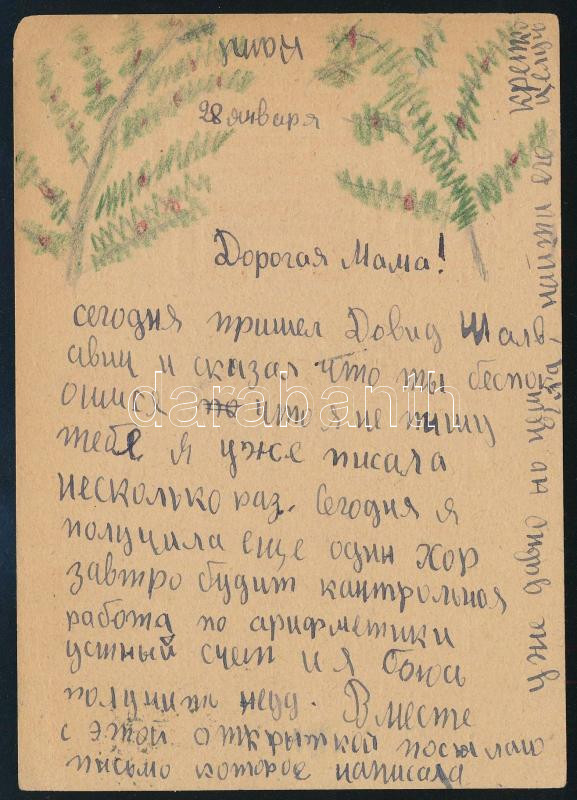 28 января
Дорогая Мама!
сегодня пришел Довид Шалв
авич и сказал что ты беспок
оишся что я не пишу
тебе я уже писала
несколько раз. Сегодня я
получила еще один хор
завтро будит кантрольная
работа по арифметики
устный счет и я боюсь
получить недд. Вместе
с этой открыткой посылаю
письмо которое написала
уже давно но найти его
крепко
целую
darabanth